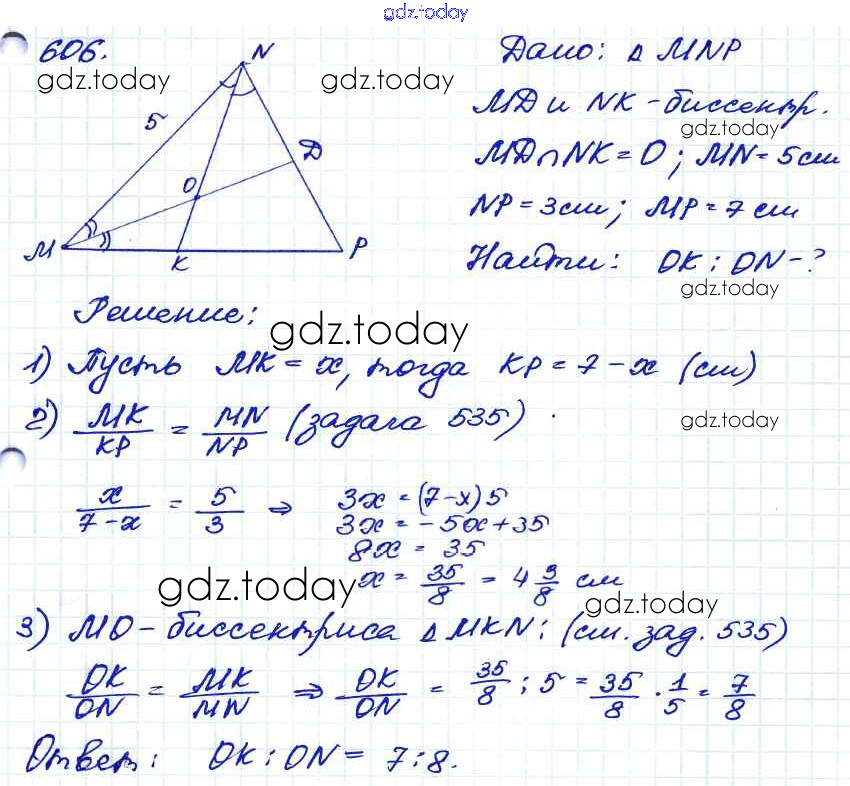 gdz.today
606.
gdz.today
N
5
D
O
M
K
P
Дано: △ MNP
gdz.today
MD и NK - биссектр.
gdz.today
MD∩NK = O ; MN = 5см
NP = 3см ; MP = 7 см
Найти: OK : ON - ?
gdz.today
Решение:
gdz.today
1) Пусть MK = x, тогда KP = 7 - x (см)
2) MK/KP = MN/NP (задача 535)
gdz.today
x/(7-x) = 5/3 ⇒ 3x = (7-x)5
3x = -5x+35
8x = 35
gdz.today
x = 35/8 = 4 3/8 см
gdz.today
3) MO - биссектриса △ MKN: (см. зад. 535)
OK/ON = MK/MN ⇒ OK/ON = 35/8 : 5 = 35/8 · 1/5 = 7/8
Ответ: OK : ON = 7 : 8.